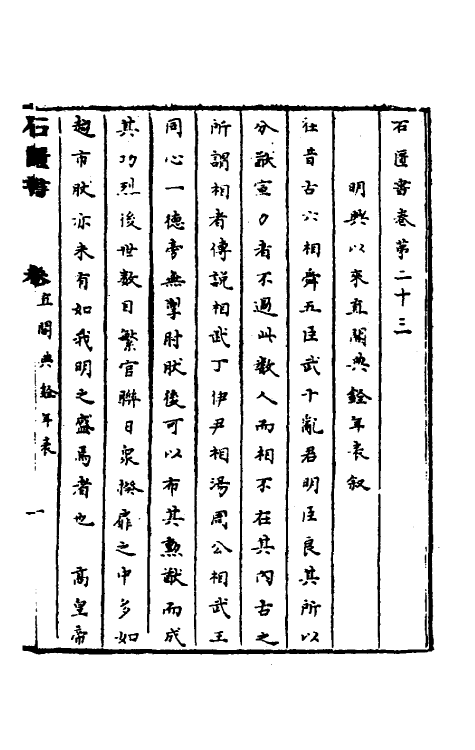 石匱書卷第二十三
明興以來直閣典銓年表叙
往昔古六相舜五臣武十亂君明臣良其所以
分猷宣力者不過此數人而相不在其內古之
所謂相者傅説相武丁伊尹相湯周公相武王
同心一德旁無掣肘肰後可以布其勲猷而成
其功烈後世數目繁官聯日衆揆扉之中多如
趨市肰亦未有如我明之盛焉者也　高皇帝
石匱書　卷　直閣典銓年表　一